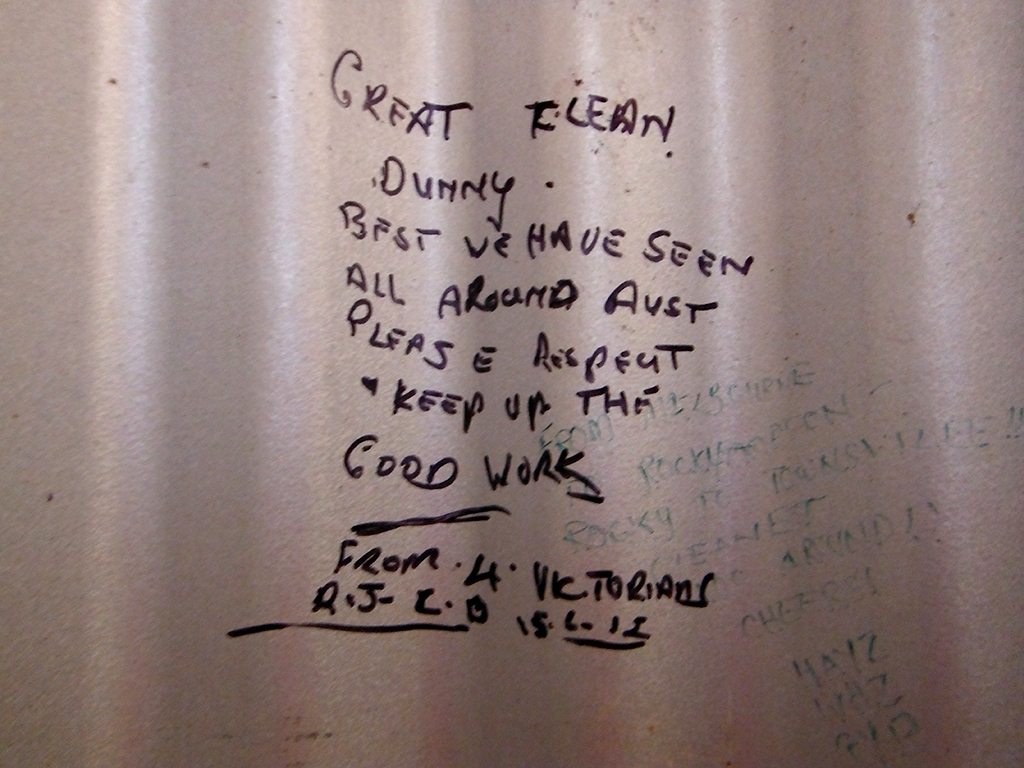 GREAT CLEAN
DUNNY.
BEST WE HAVE SEEN
ALL AROUND AUST
PLEASE RESPECT
KEEP UP THE
GOOD WORK
FROM 4 VICTORIANS
15.6.12
FROM MELBOURNE
ROCKHAMPTON -
ROCKY TO TOWNSVILLE!!
AROUND!!
CHEERS!